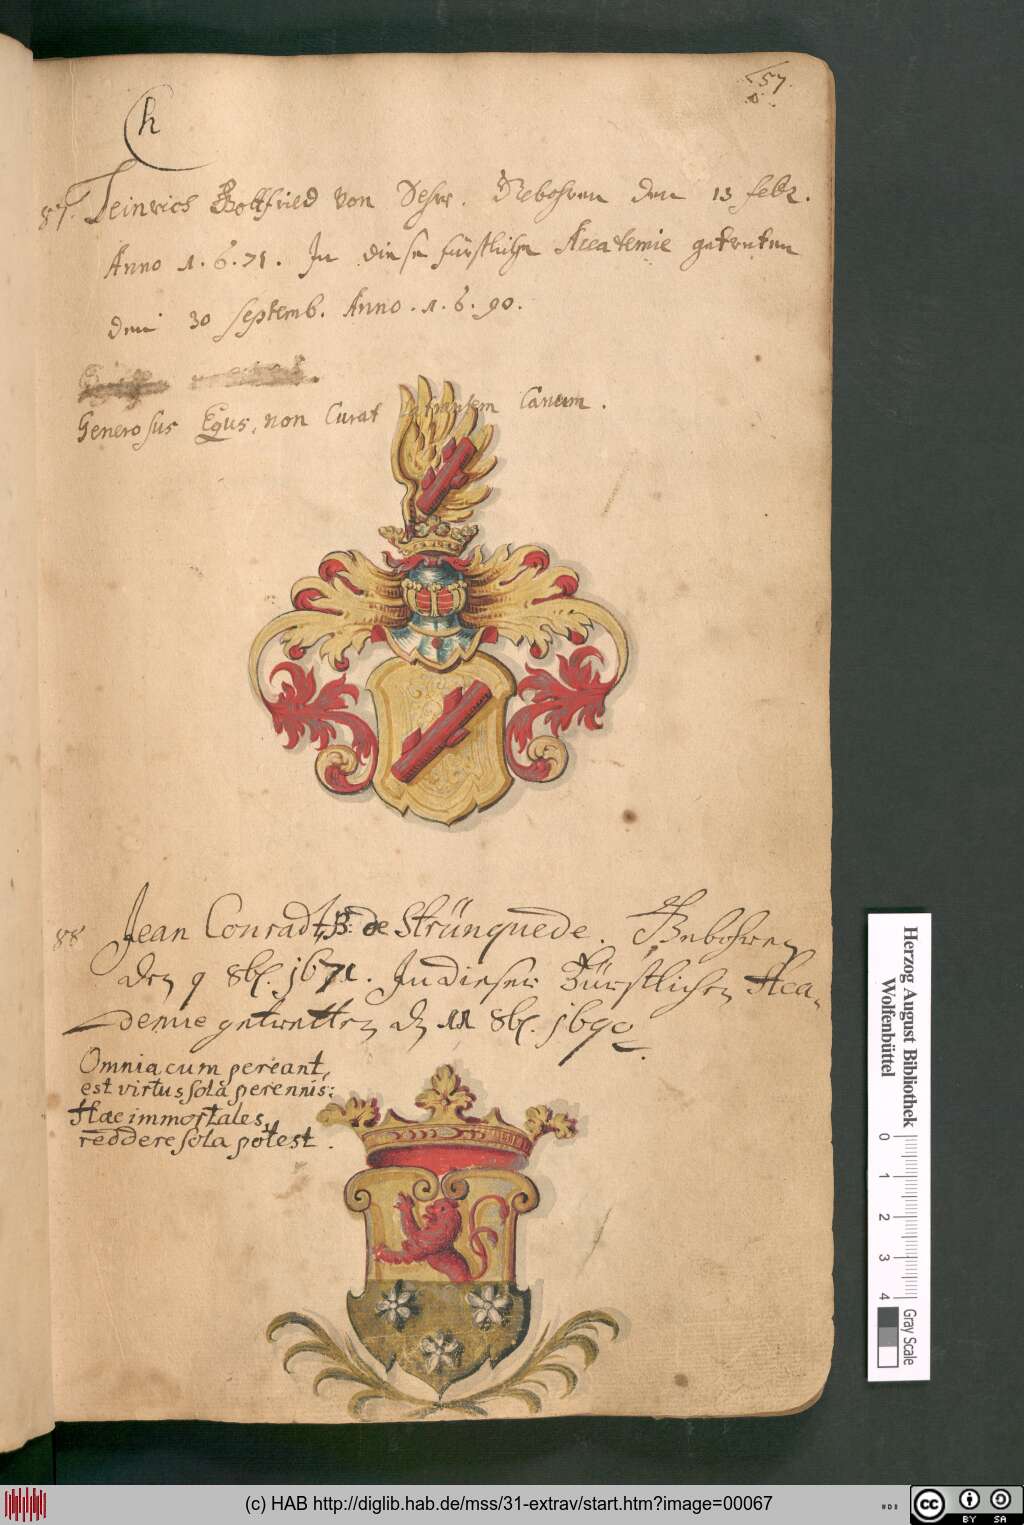 57.
h
87. Heinrich Gottfried Von Dehrr. Gebohren den 13 febr.
Anno 1.6.71. In diese fürstliche Accademie getreten
den 30 septemb. Anno.1.6.90.
Generosus Equs, non Curat latrantem Canem.
88 Jean Conradt, B: de Strünquede. Gebohren
den 9 8br. 1671. In dieser Fürstlichen Aca-
demie getretten d 11 8br. 1690.
Omnia cum pereant,
est virtus sola perennis:
Hæc immortales,
reddere sola potest.
Herzog August Bibliothek
Wolfenbüttel
0 1 2 3 4
Gray Scale
(c) HAB http://diglib.hab.de/mss/31-extrav/start.htm?image=00067
cc BY SA